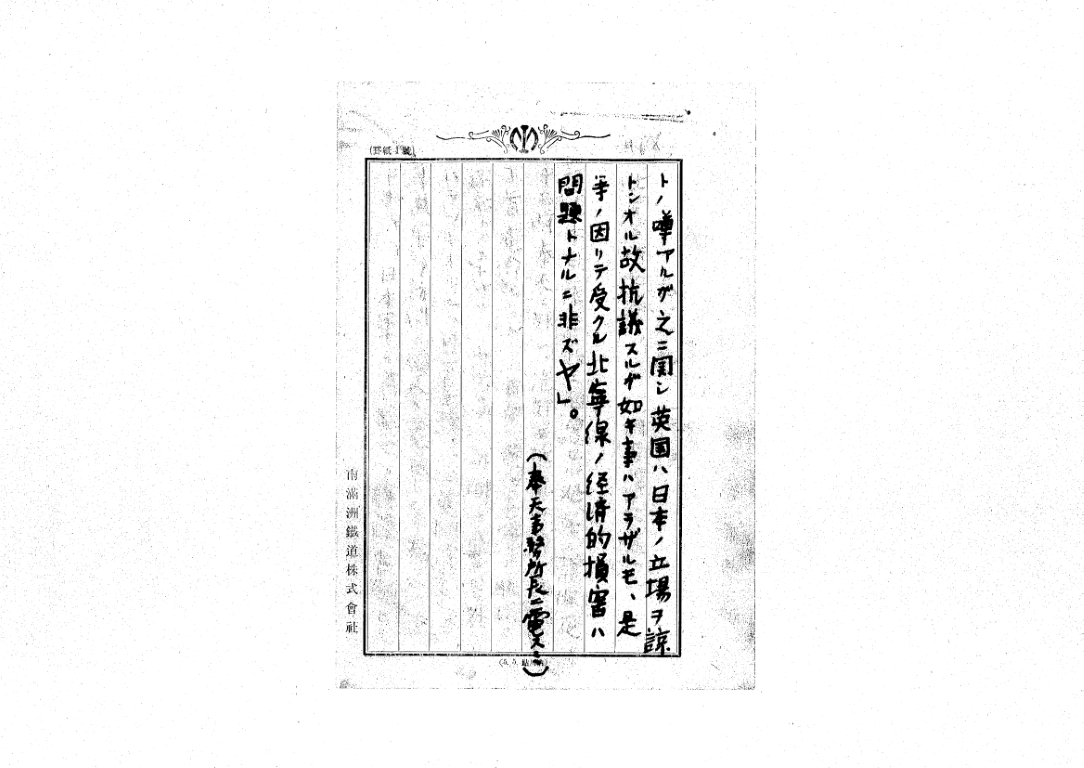 (罫紙1號)
トノ噂アルガ之ニ関シ英国ハ日本ノ立場ヲ諒
トシオル故抗議スルガ如キ事ハアラザルモ、是
等ノ因リテ受クル北寧線ノ経済的損害ハ
問題トナルニ非ズヤ」。
(奉天事務所長ニ電ス)
南滿洲鐵道株式會社